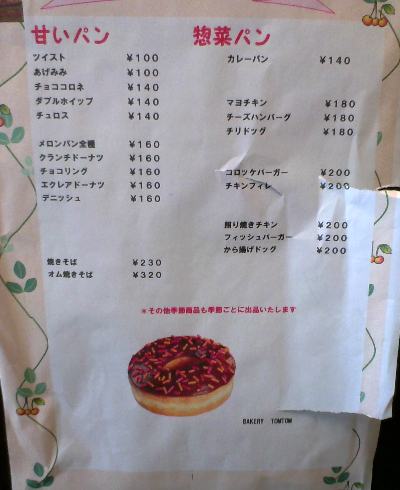 甘いパン
ツイスト ￥100
あげみみ ￥100
チョココロネ ￥140
ダブルホイップ ￥140
チュロス ￥140
メロンパン全種 ￥160
クランチドーナツ ￥160
チョコリング ￥160
エクレアドーナツ ￥160
デニッシュ ￥160
焼きそば ￥230
オム焼きそば ￥320
惣菜パン
カレーパン ￥140
マヨチキン ￥180
チーズハンバーグ ￥180
チリドッグ ￥180
コロッケバーガー ￥200
チキンフィレ ￥200
照り焼きチキン ￥200
フィッシュバーガー ￥200
から揚げドッグ ￥200
＊その他季節商品も季節ごとに出品いたします
BAKERY TOMTOM